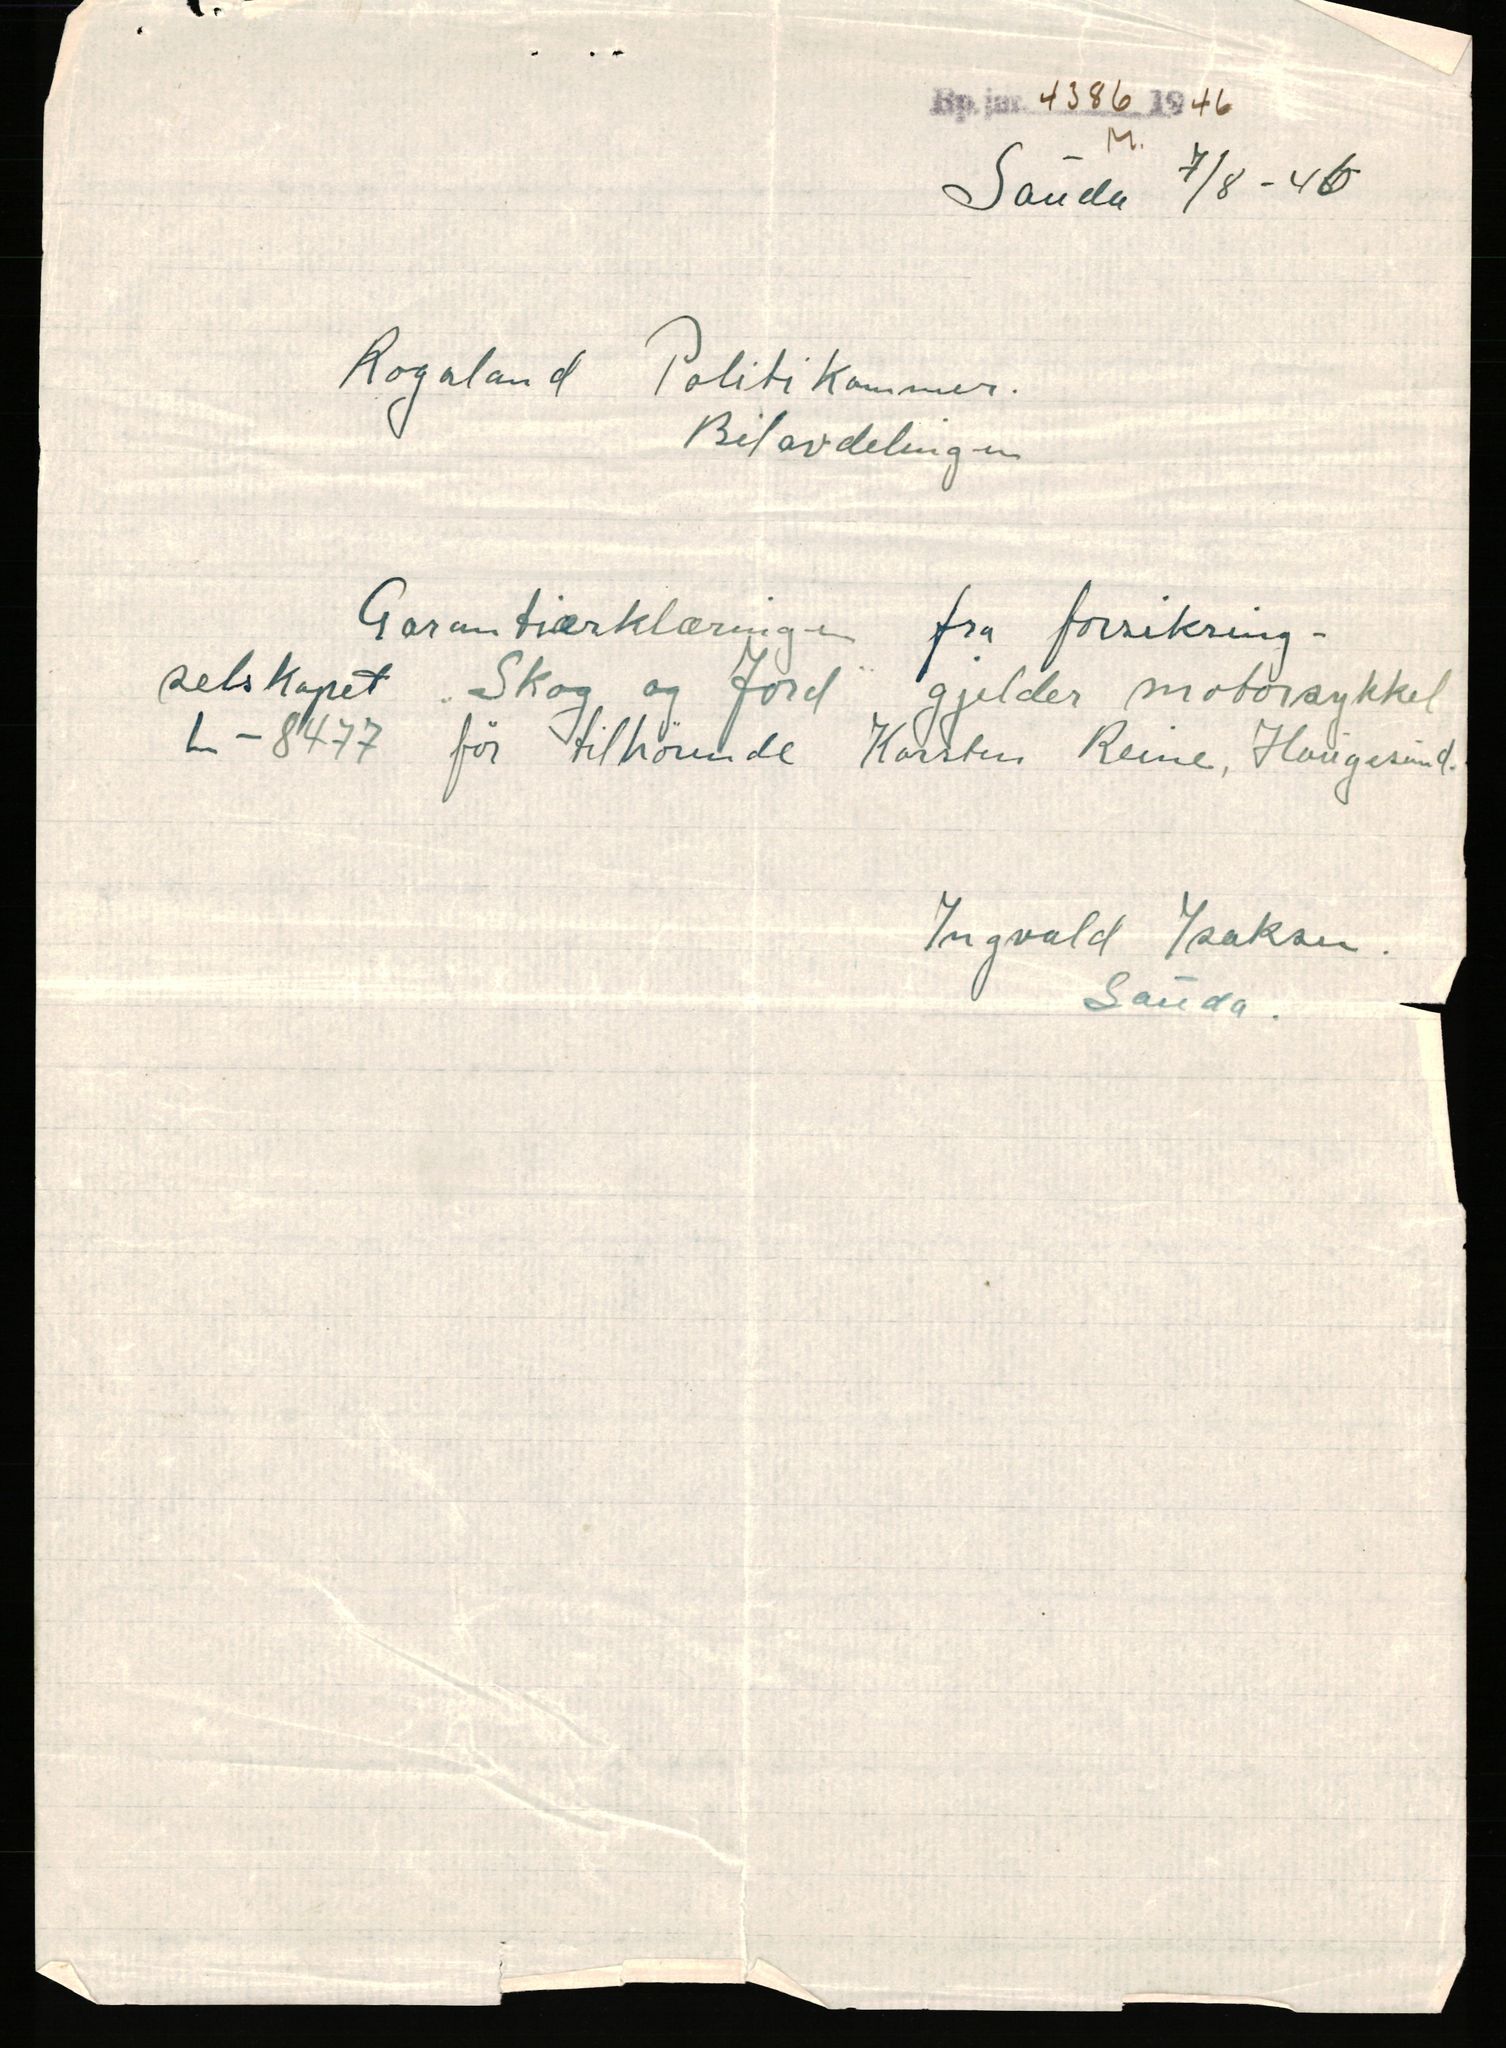 Rp. jnr. 4386 1946
M.
Sauda 7/8 - 46
Rogaland Politikammer.
Bilavdelingen
Garantiærklæringen fra forsikring-
selskapet "Skog og Jord" gjelder motorsykkel
L-8477 för tilhörende Karsten Reine, Haugesund.
Ingvald Isaksen.
Sauda.